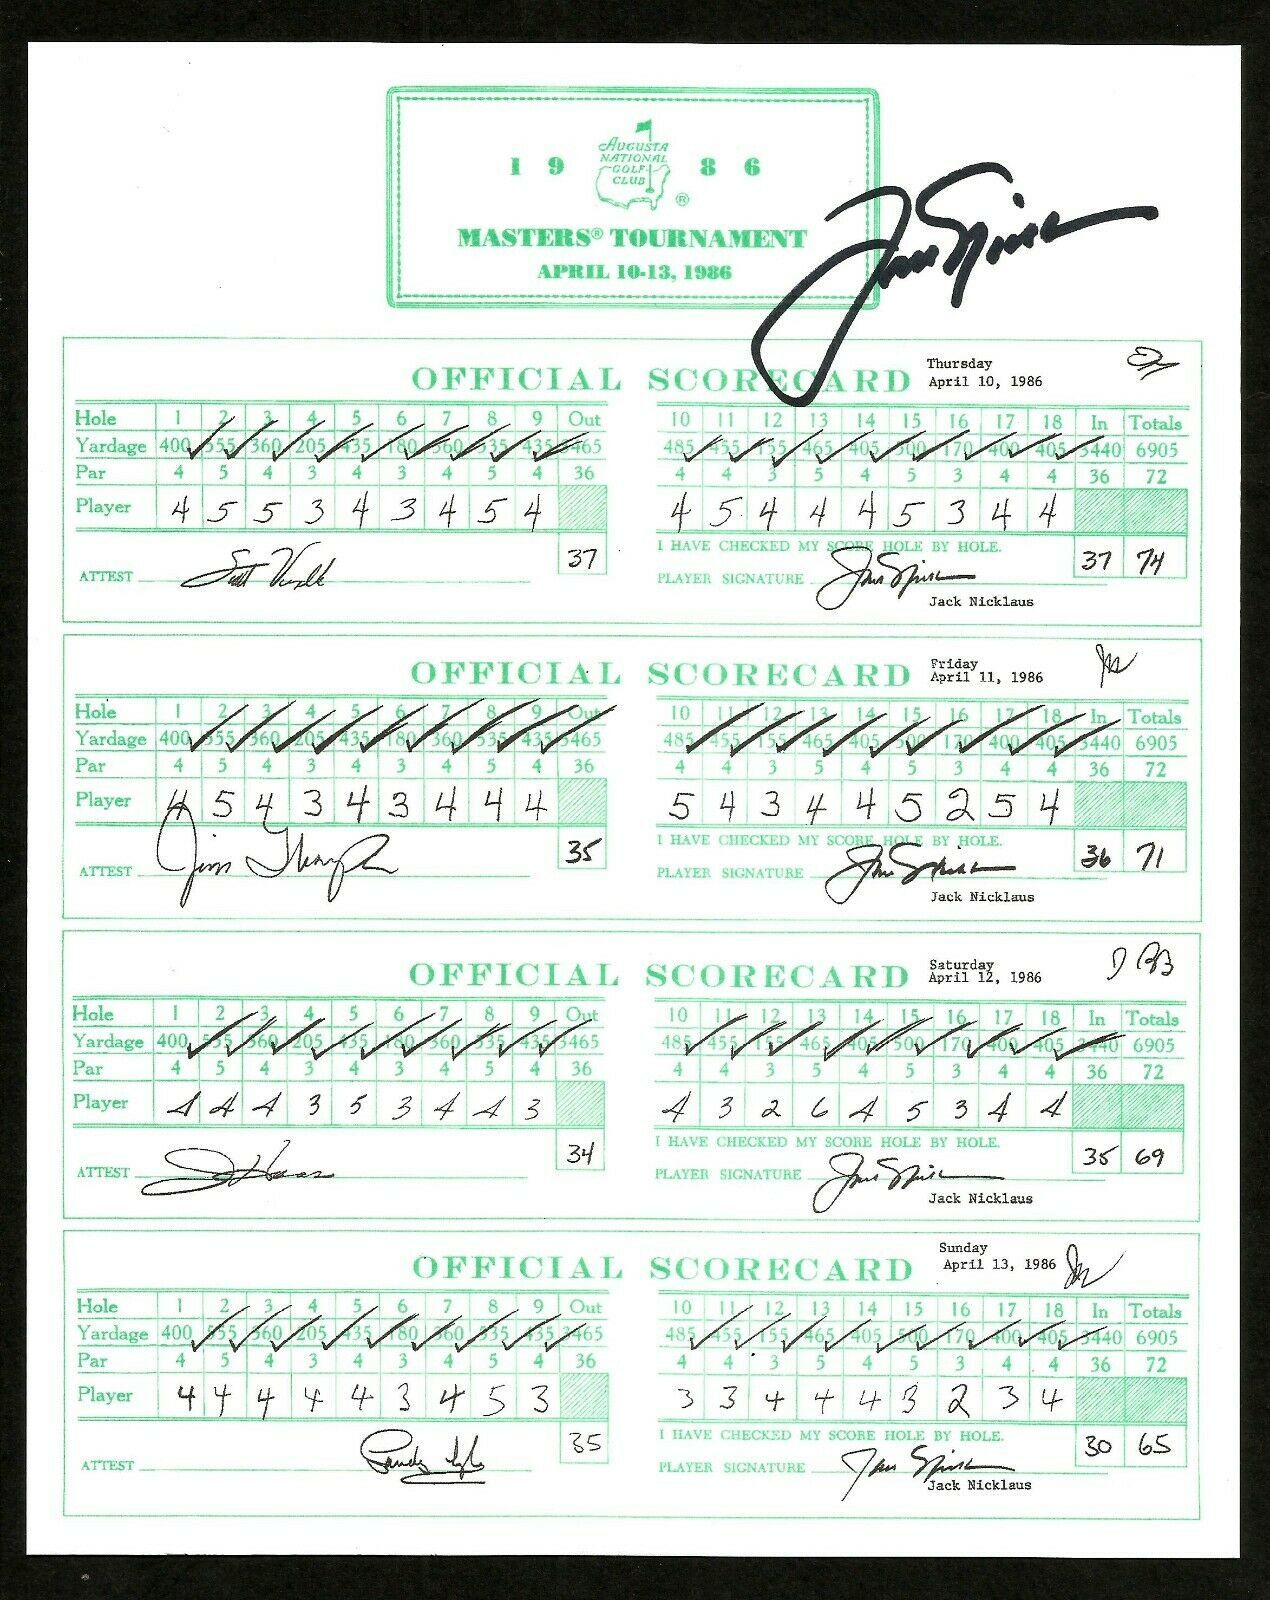 1986
AUGUSTA
NATIONAL
GOLF
CLUB
®
MASTERS® TOURNAMENT
APRIL 10-13, 1986
OFFICIAL SCORECARD Thursday
April 10, 1986
Hole 1 2 3 4 5 6 7 8 9 Out 10 11 12 13 14 15 16 17 18 In Totals
Yardage 400 555 360 205 435 180 360 535 435 3465 485 455 155 465 405 500 170 400 405 3440 6905
Par 4 5 4 3 4 3 4 5 4 36 4 4 3 5 4 5 3 4 4 36 72
Player 4 5 5 3 4 3 4 5 4 4 5 4 4 4 5 3 4 4
I HAVE CHECKED MY SCORE HOLE BY HOLE.
37 37 74
ATTEST PLAYER SIGNATURE
Jack Nicklaus
OFFICIAL SCORECARD Friday
April 11, 1986
Hole 1 2 3 4 5 6 7 8 9 Out 10 11 12 13 14 15 16 17 18 In Totals
Yardage 400 555 360 205 435 180 360 535 435 3465 485 455 155 465 405 500 170 400 405 3440 6905
Par 4 5 4 3 4 3 4 5 4 36 4 4 3 5 4 5 3 4 4 36 72
Player 4 5 4 3 4 3 4 4 4 5 4 3 4 4 5 2 5 4
I HAVE CHECKED MY SCORE HOLE BY HOLE.
35 36 71
ATTEST Jim Thorpe PLAYER SIGNATURE
Jack Nicklaus
OFFICIAL SCORECARD Saturday
April 12, 1986
Hole 1 2 3 4 5 6 7 8 9 Out 10 11 12 13 14 15 16 17 18 In Totals
Yardage 400 555 360 205 435 180 360 535 435 3465 485 455 155 465 405 500 170 400 405 3440 6905
Par 4 5 4 3 4 3 4 5 4 36 4 4 3 5 4 5 3 4 4 36 72
Player 4 4 4 3 5 3 4 4 3 4 3 2 6 4 5 3 4 4
I HAVE CHECKED MY SCORE HOLE BY HOLE.
34 35 69
ATTEST PLAYER SIGNATURE
Jack Nicklaus
OFFICIAL SCORECARD Sunday
April 13, 1986
Hole 1 2 3 4 5 6 7 8 9 Out 10 11 12 13 14 15 16 17 18 In Totals
Yardage 400 555 360 205 435 180 360 535 435 3465 485 455 155 465 405 500 170 400 405 3440 6905
Par 4 5 4 3 4 3 4 5 4 36 4 4 3 5 4 5 3 4 4 36 72
Player 4 4 4 4 4 3 4 5 3 3 3 4 4 4 3 2 3 4
I HAVE CHECKED MY SCORE HOLE BY HOLE.
35 30 65
ATTEST Sandy Lyle PLAYER SIGNATURE
Jack Nicklaus